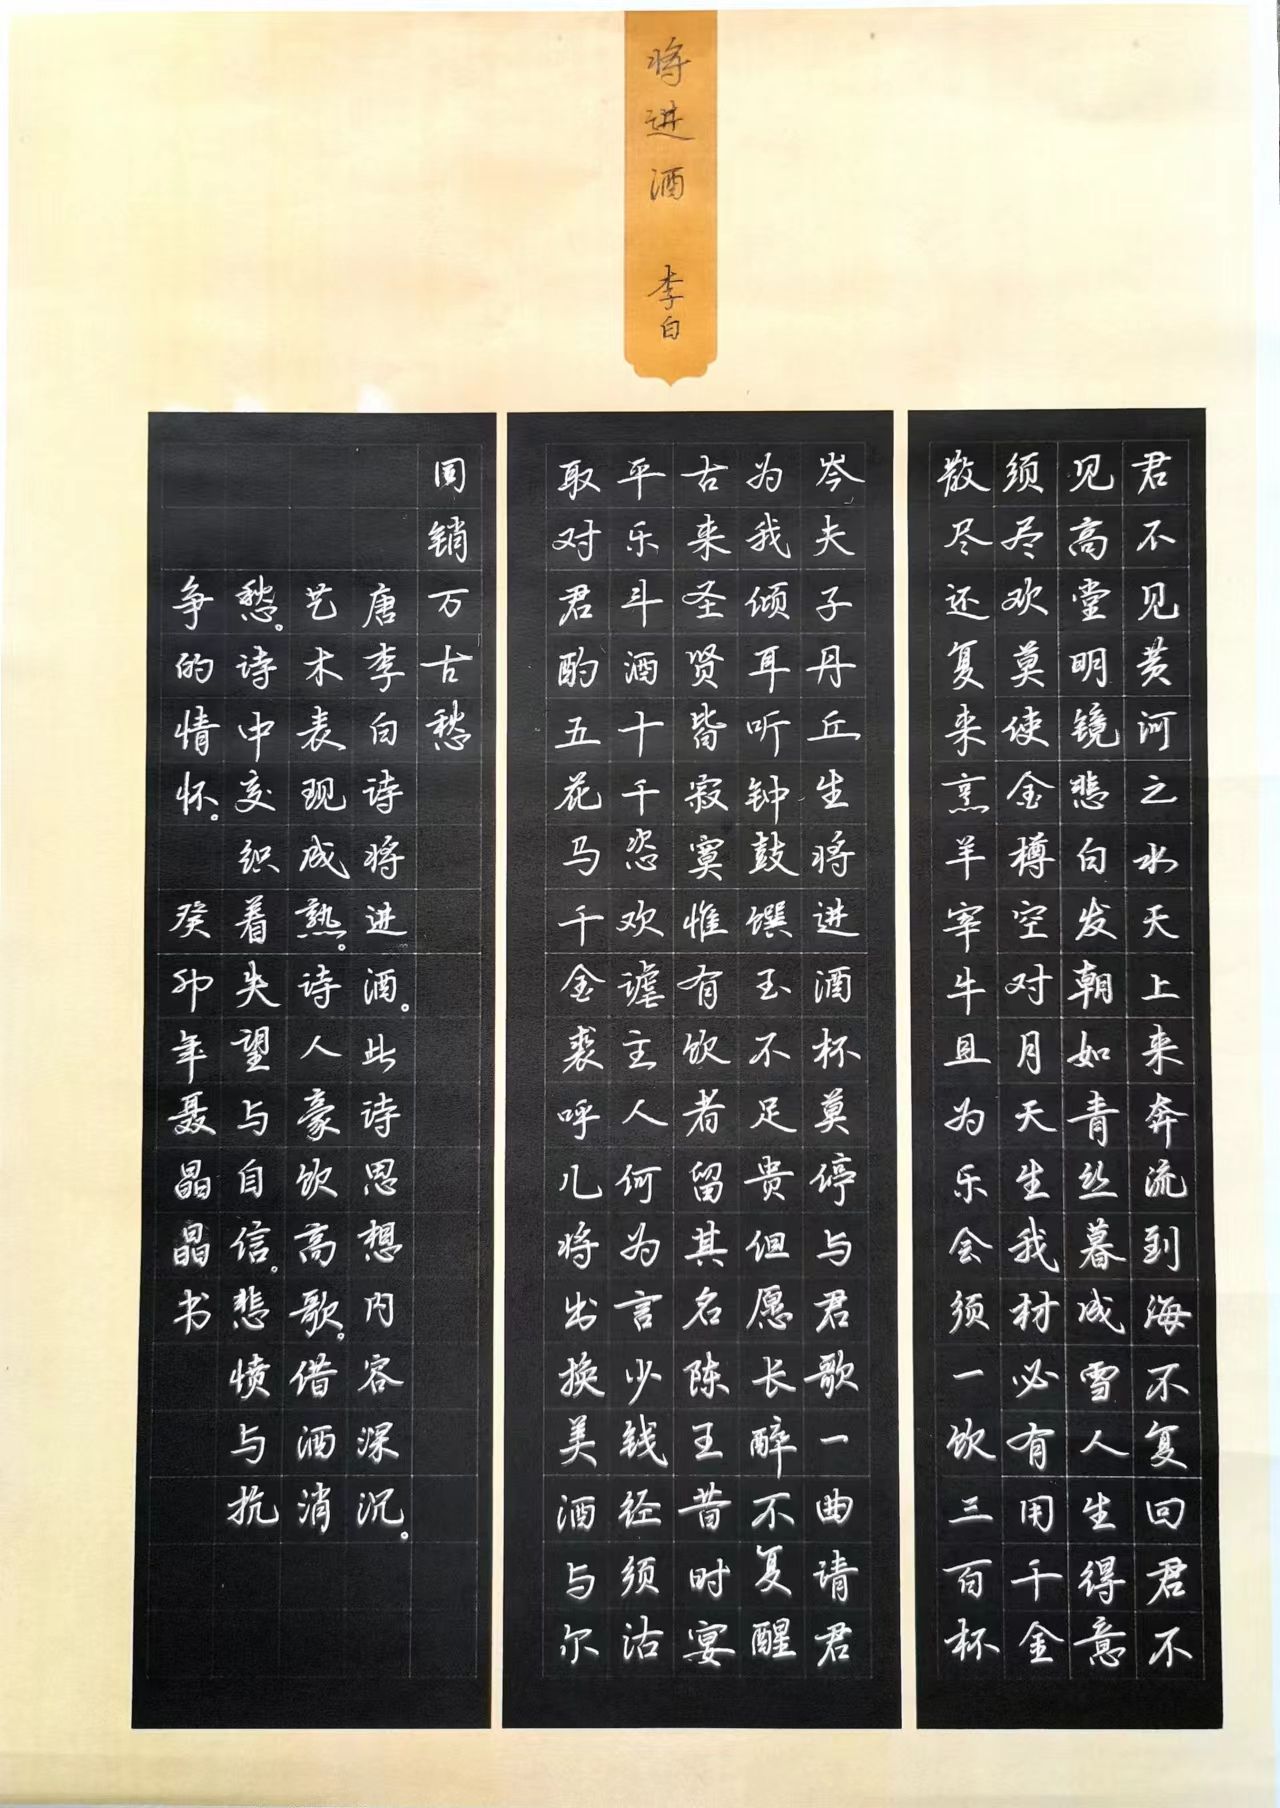 将进酒 李白
君不见黄河之水天上来奔流到海不复回君不
见高堂明镜悲白发朝如青丝暮成雪人生得意
须尽欢莫使金樽空对月天生我材必有用千金
散尽还复来烹羊宰牛且为乐会须一饮三百杯
岑夫子丹丘生将进酒杯莫停与君歌一曲请君
为我倾耳听钟鼓馔玉不足贵但愿长醉不复醒
古来圣贤皆寂寞惟有饮者留其名陈王昔时宴
平乐斗酒十千恣欢谑主人何为言少钱经须沽
取对君酌五花马千金裘呼儿将出换美酒与尔
同销万古愁
唐李白诗将进酒。此诗思想内容深沉。
艺术表现成熟。诗人豪饮高歌。借酒消
愁。诗中交织着失望与自信。悲愤与抗
争的情怀。癸卯年聂晶晶书